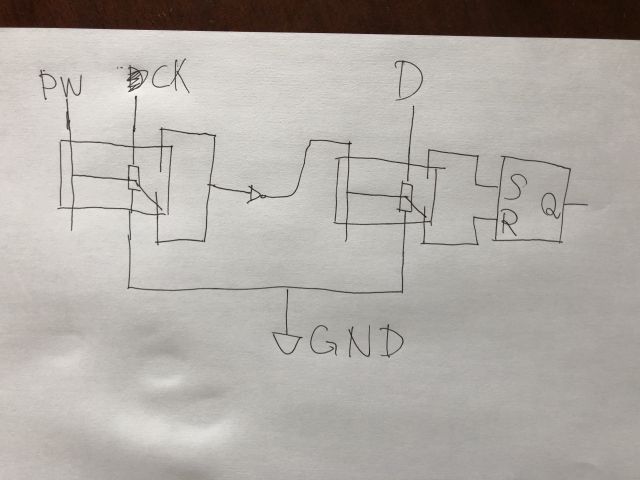 PW CK D
S
R Q
GND